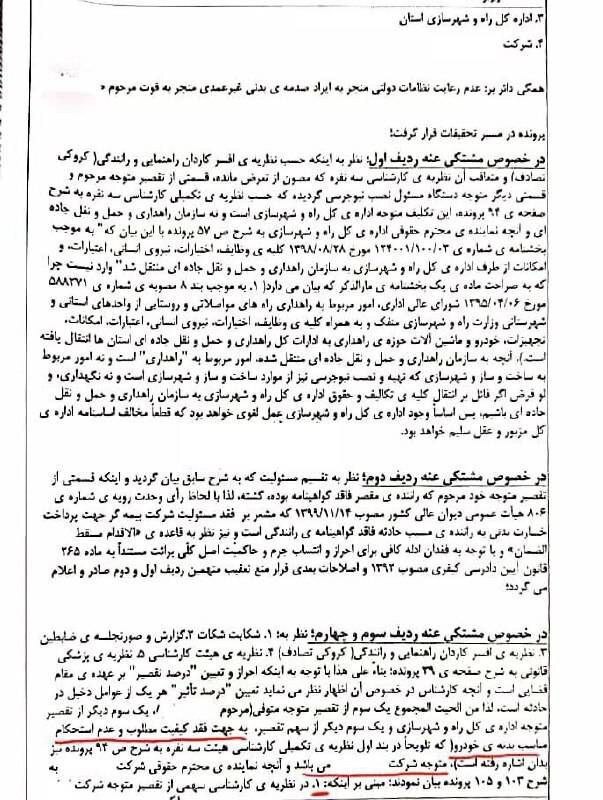 ۳. اداره کل راه و شهرسازی استان
۴. شرکت
همگی دائر بر: عدم رعایت نظامات دولتی منجر به ایراد صدمه ی بدنی غیرعمدی منجر به فوت مرحوم
پرونده در مسیر تحقیقات قرار گرفت؛
در خصوص مشتکی عنه ردیف اول؛ نظر به اینکه حسب نظریه ی افسر کاردان راهنمایی و رانندگی( کروکی
تصادف) و متعاقب آن نظریه ی کارشناسی سه نفره که مصون از تعرض مانده، قسمتی از تقصیر متوجه مرحوم و
قسمتی دیگر متوجه دستگاه مسئول نصب نیوجرسی گردیده که حسب نظریه ی تکمیلی کارشناسی سه نفره به شرح
صفحه ی ۹۴ پرونده، این تکلیف متوجه اداره ی کل راه و شهرسازی است و نه سازمان راهداری و حمل و نقل جاده
ای و آنچه نماینده ی محترم حقوقی اداره ی کل راه و شهرسازی به شرح ص ۵۷ پرونده با این بیان که" به موجب
بخشنامه ی شماره ی ۱۲۴۰۰۱/۱۰۰/۰۳ مورخ ۱۳۹۸/۰۸/۲۸ کلیه ی وظایف، اختیارات، نیروی انسانی، اعتبارات، و
امکانات از طرف اداره ی کل راه و شهرسازی به سازمان راهداری و حمل و نقل جاده ای منتقل شد" وارد نیست چرا
که به صراحت ماده ی یک بخشنامه ی مارالذکر که بیان می دارد( ۱. به موجب بند ۸ مصوبه ی شماره ی ۵۸۸۳۷۱
مورخ ۱۳۹۵/۰۴/۰۶ شورای عالی اداری، امور مربوط به راهداری راه های مواصلاتی و روستایی از واحدهای استانی و
شهرستانی وزارت راه و شهرسازی منفک و به همراه کلیه ی وظایف، اختیارات، نیروی انسانی، اعتبارات، امکانات،
تجهیزات، خودرو و ماشین آلات حوزه ی راهداری به ادارات کل راهداری و حمل و نقل جاده ای استان ها انتقال یافته
است.)، آنچه به سازمان راهداری و حمل و نقل جاده ای منتقل شده، امور مربوط به "راهداری" است و نه امور مربوط
به ساخت و ساز و شهرسازی که تهیه و نصب نیوجرسی نیز از موارد ساخت و ساز و شهرسازی است و نه نگهداری، و
لو فرض اگر قائل بر انتقال کلیه ی تکالیف و حقوق اداره ی کل راه و شهرسازی به سازمان راهداری و حمل و نقل
جاده ای باشیم، پس اساساً وجود اداره ی کل راه و شهرسازی عمل لغوی خواهد بود که قطعاً مخالف اساسنامه اداره ی
کل مزبور و عقل سلیم خواهد بود.
در خصوص مشتکی عنه ردیف دوم؛ نظر به تقسیم مسئولیت که به شرح سابق بیان گردید و اینکه قسمتی از
تقصیر متوجه خود مرحوم که راننده ی مقصر فاقد گواهینامه بوده، گشته، لذا با لحاظ رأی وحدت رویه ی شماره ی
۸۰۶ هیأت عمومی دیوان عالی کشور مصوب ۱۳۹۹/۱۱/۱۴ که مشعر بر فقد مسئولیت شرکت بیمه گر جهت پرداخت
خسارت بدنی به راننده ی مسبب حادثه فاقد گواهینامه ی رانندگی است و نیز نظر به قاعده ی «الاقدام مسقط
الضمان» و با توجه به فقدان ادله کافی برای احراز و انتساب جرم و حاکمیت اصل کلی برائت مستنداً به ماده ۲۶۵
قانون آیین دادرسی کیفری مصوب ۱۳۹۲ و اصلاحات بعدی قرار منع تعقیب متهمین ردیف اول و دوم صادر و اعلام
می گردد؛
در خصوص مشتکی عنه ردیف سوم و چهارم؛ نظر به: ۱. شکایت شکات ۲.گزارش و صورتجلسه ی ضابطین
۳. نظریه ی افسر کاردان راهنمایی و رانندگی( کروکی تصادف) ۴. نظریه ی هیئت کارشناسی ۵. نظریه ی پزشکی
قانونی به شرح صفحه ی ۳۹ پرونده؛ بناءً علی هذا با توجه به اینکه احراز و تعیین "درصد تقصیر" بر عهده ی مقام
قضایی است و آنچه کارشناس در خصوص آن اظهار نظر می نماید تعیین "درصد تأثیر" هر یک از عوامل دخیل در
حادثه است، لذا من الحیث المجموع یک سوم از تقصیر متوجه متوفی(مرحوم ، یک سوم دیگر از تقصیر
متوجه اداره ی کل راه و شهرسازی و یک سوم دیگر از سهم تقصیر، به جهت فقد کیفیت مطلوب و عدم استحکام
مناسب بدنه ی خودرو( که تلویحاً در بند اول نظریه ی تکمیلی کارشناسی هیئت سه نفره به شرح ص ۹۴ پرونده نیز
بدان اشاره رفته است)، متوجه شرکت می باشد و آنچه نماینده ی محترم حقوقی شرکت به
شرح ۱۰۳ و ۱۰۵ پرونده بیان نمودند؛ مبنی بر اینکه: ۱. در نظریه ی کارشناسی سهمی از تقصیر به شرکت